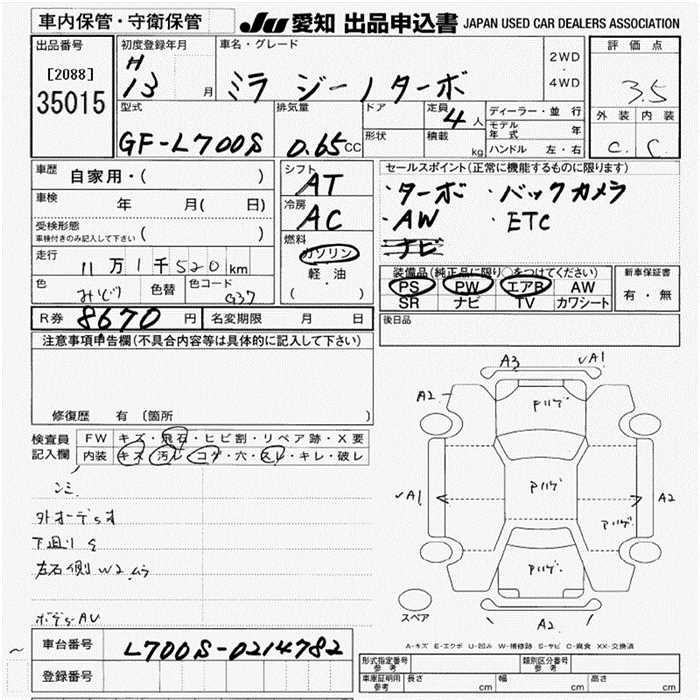 車内保管・守衛保管
JU 愛知 出品申込書 JAPAN USED CAR DEALERS ASSOCIATION
出品番号
[2088]
35015
初度登録年月
H
13 月
車名・グレード
ミラ ジーノターボ
2WD
・
4WD
評価点
3.5
外装 内装
C. C.
型式
GF-L700S
排気量
0.65 CC
ドア
形状
定員
4 人
積載
kg
ディーラー・並行
モデル年式 年
ハンドル 左・右
車歴
自家用・( )
車検
年 月( 日)
受検形態
車検付きのみ記入して下さい ( )
走行
11 万 1 千 520 km
色
みどり
色替
色コード
G37
シフト
AT
冷房
AC
燃料
ガソリン
軽・油
( )
セールスポイント(正常に機能するものに限ります)
・ターボ ・バックカメラ
・AW ・ETC
ナビ
装備品(純正品に限り○をつけてください)
PS PW エアB AW
SR ナビ TV カワシート
新車保証書
有・無
R券 8670 円 名変期限 月 日
後日品
注意事項申告欄(不具合内容等は具体的に記入して下さい)
修復歴 有 〔箇所 〕
検査員
記入欄
FW キズ・飛石・ヒビ割・リペア跡・X要
内装 キズ・汚レ・コゲ・穴・スレ・キレ・破レ
シミ
外オーデs才
下廻りs
左右側W2ムラ
ボデsAU
A3 ✓A1
A2
Fハゲ
✓A1
Aハゲ
A2
Aハゲ
Aハゲ
A2
スペア
A-キズ E-エクボ U-凹み W-補修跡 S-サビ C-腐食 XX-交換済
車台番号
L700S-0214782
登録番号
形式指定番号
参考
類別区分番号
参考
車庫証明用
参考
長さ cm 幅 cm 高さ cm